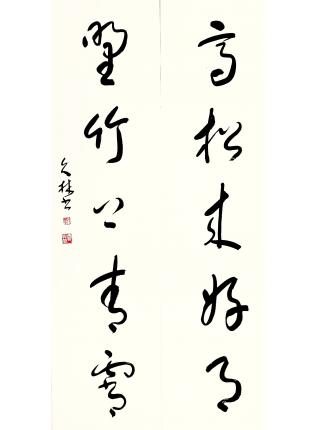 高松来好月
野竹上青霄
久林书